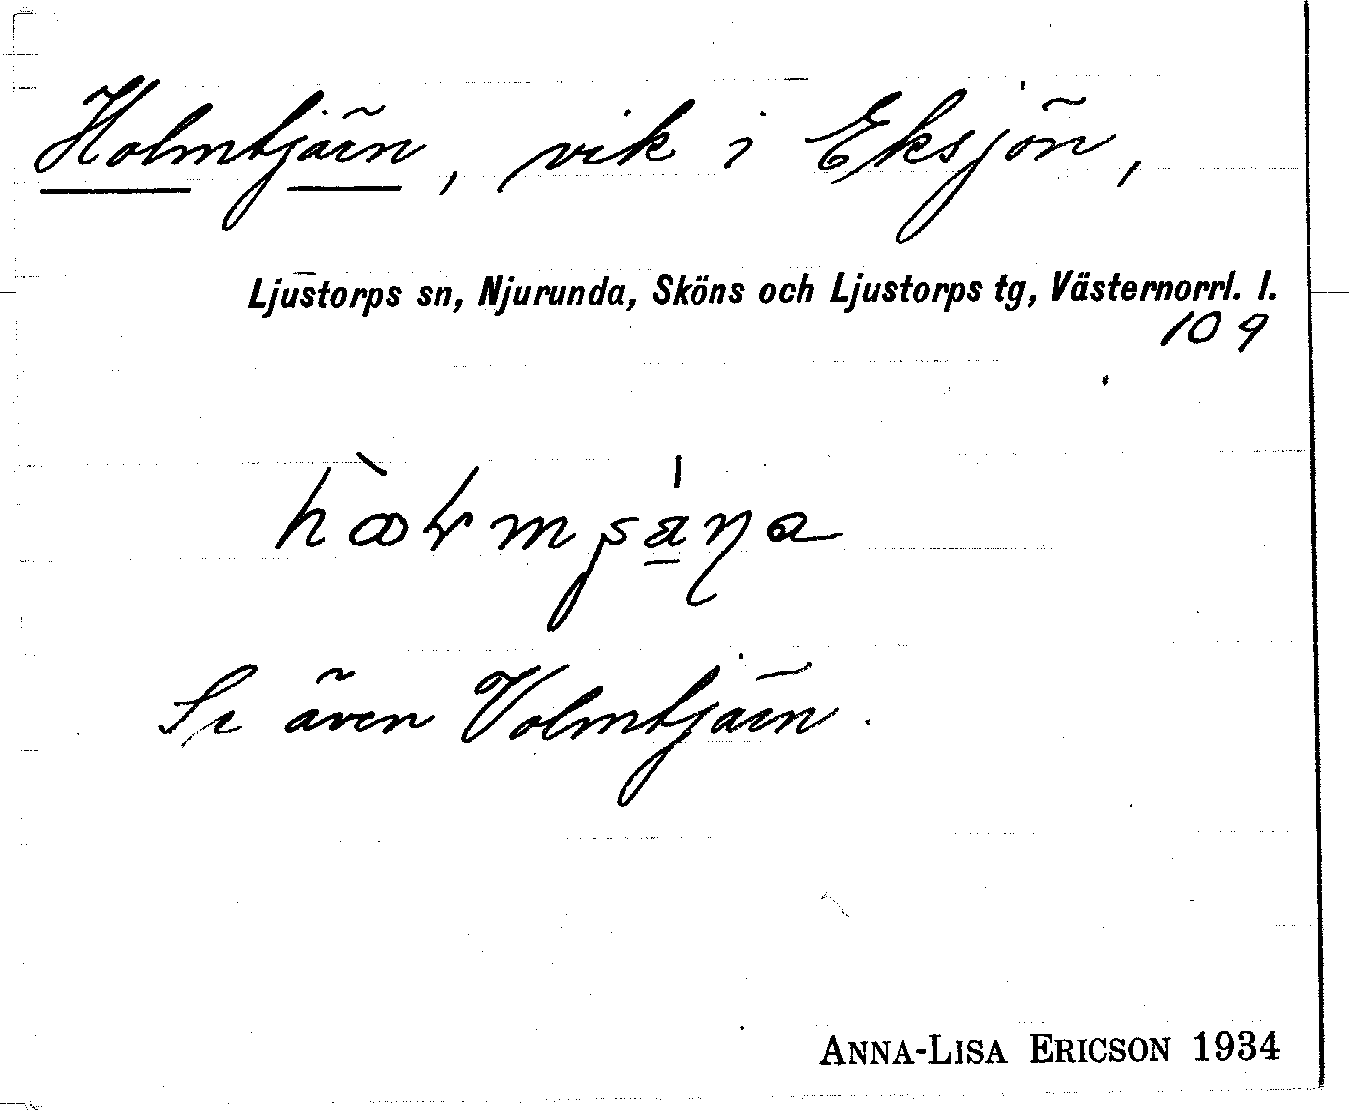 Holmtjärn, vik i Eksjön,
Ljustorps sn, Njurunda, Sköns och Ljustorps tg, Västernorrl. l.
109
Se även Volmtjärn.
ANNA-LISA ERICSON 1934